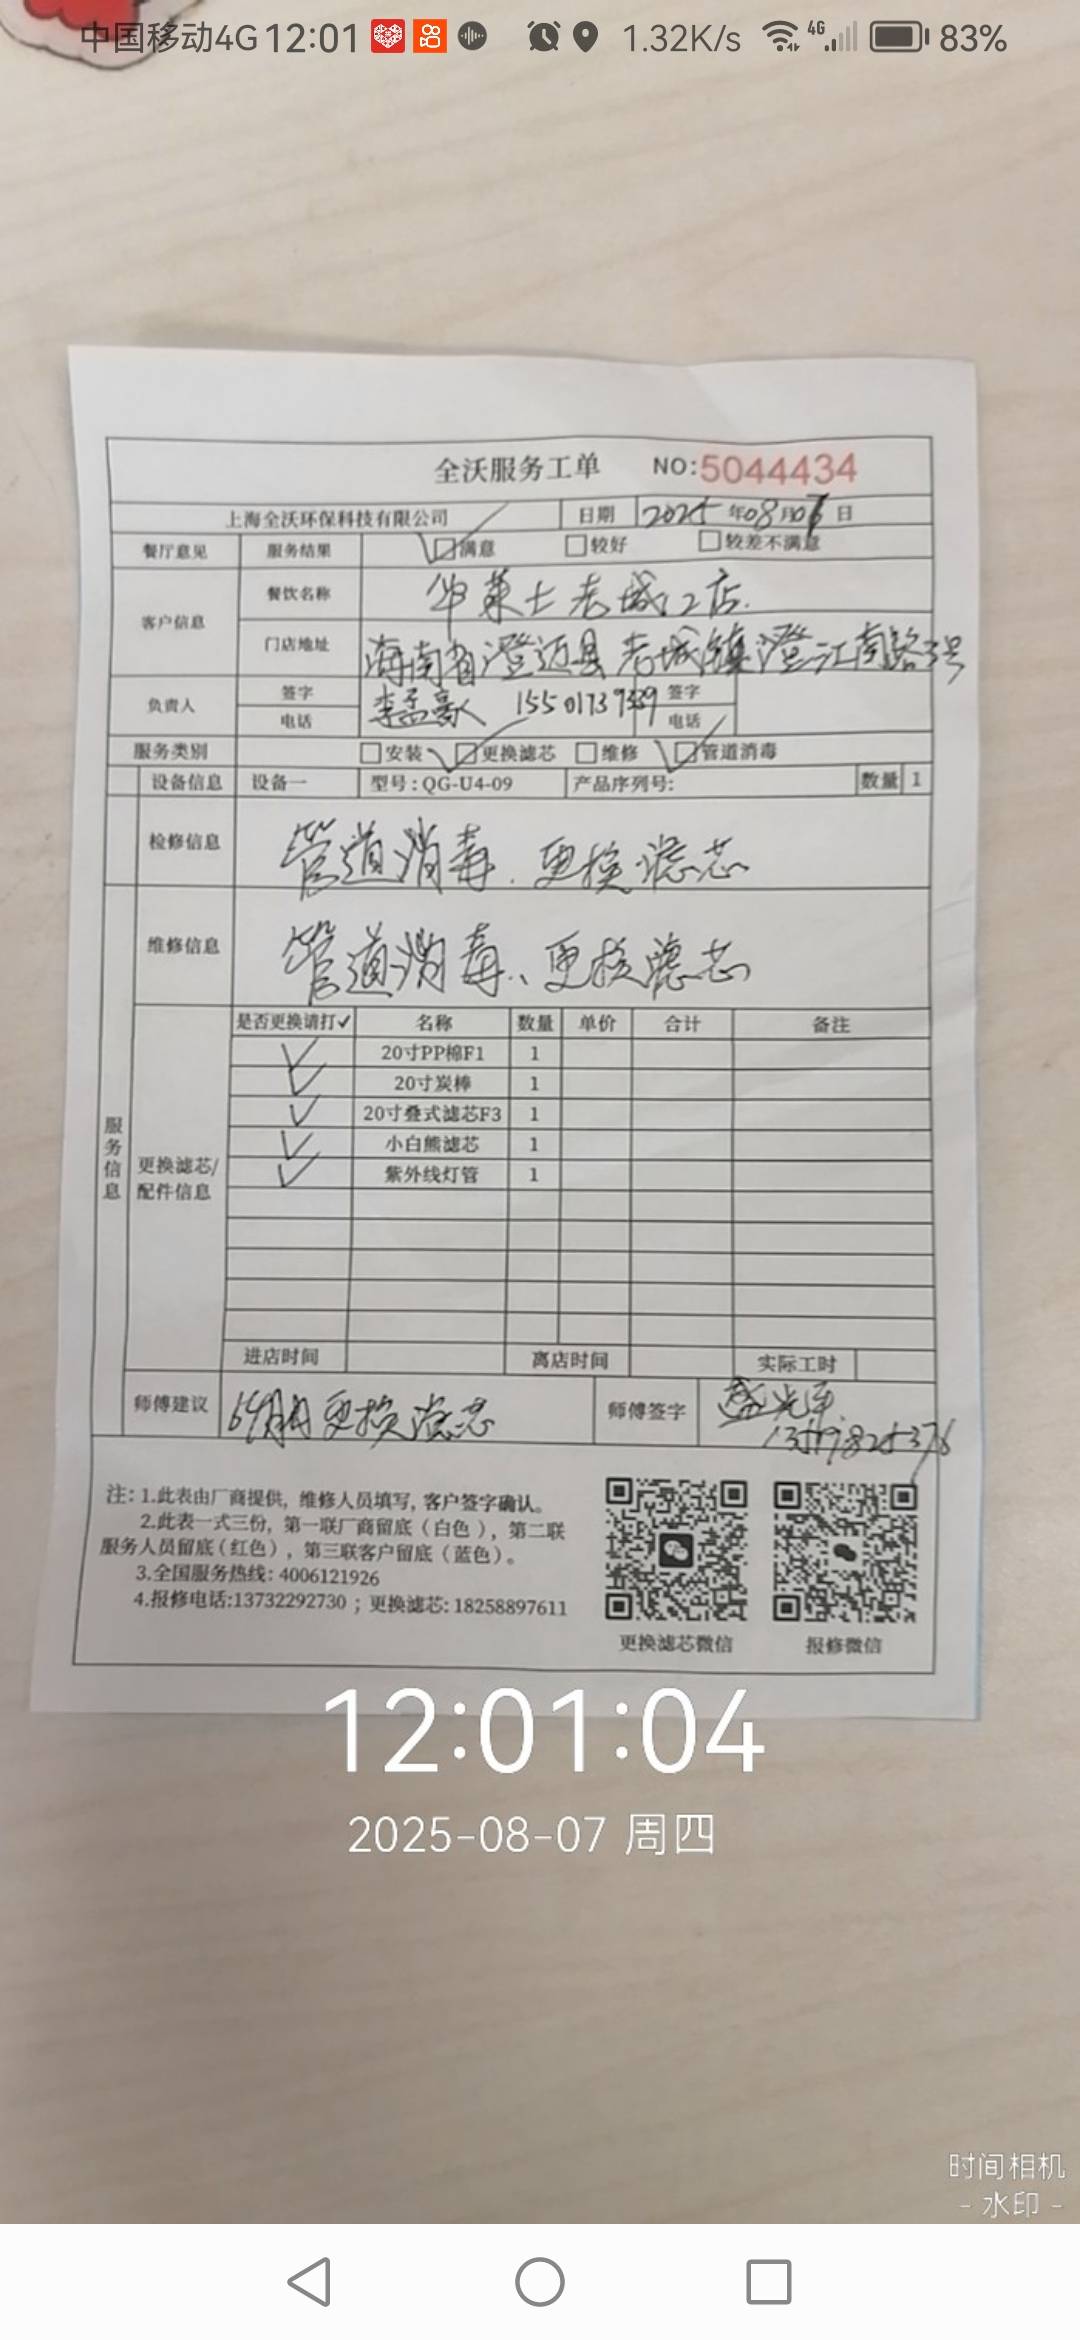 中国移动4G 12:01 1.32K/s 4G 83%
全沃服务工单 NO:5044434
上海全沃环保科技有限公司 日期 2025年08月07日
餐厅意见 服务结果 满意 较好 较差不满意
客户信息 餐饮名称 华莱士老城江店.
门店地址 海南省澄迈县老城镇澄江南路3号
负责人 签字 李孟豪 签字
电话 电话
服务类别 安装 更换滤芯 维修 管道消毒
设备信息 设备一 型号:QG-U4-09 产品序列号: 数量 1
检修信息 管道消毒、更换滤芯
维修信息 管道消毒、更换滤芯
服务信息
更换滤芯/配件信息
是否更换请打✓ 名称 数量 单价 合计 备注
✓ 20寸PP棉F1 1
✓ 20寸炭棒 1
✓ 20寸叠式滤芯F3 1
✓ 小白熊滤芯 1
✓ 紫外线灯管 1
进店时间 离店时间 实际工时
师傅建议 更换滤芯 师傅签字
注: 1.此表由厂商提供, 维修人员填写, 客户签字确认。
2.此表一式三份, 第一联厂商留底(白色), 第二联
服务人员留底(红色), 第三联客户留底(蓝色)。
3.全国服务热线: 4006121926
4.报修电话:13732292730 ; 更换滤芯: 18258897611
更换滤芯微信 报修微信
12:01:04
2025-08-07 周四
时间相机
- 水印 -